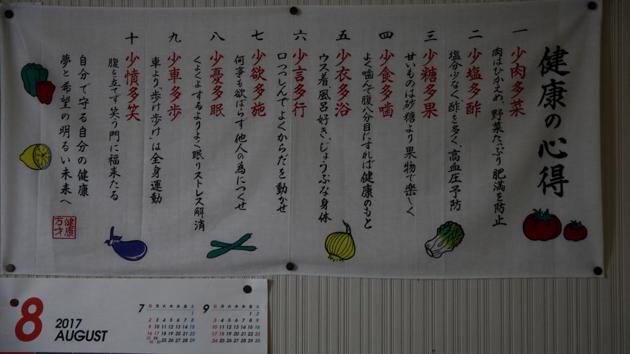 健康の心得
一 少肉多菜
肉はひかえめ、野菜たっぷり肥満を防止
二 少塩多酢
塩分少なく酢を多く、高血圧予防
三 少糖多果
甘いものは砂糖より果物で楽しく
四 少食多噛
よく噛んで腹八分目にすれば健康のもと
五 少衣多浴
ウス着風呂好き、じょうぶな身体
六 少言多行
口つつしんでよくからだを動かせ
七 少欲多施
何事も欲ばらず他人の為につくせ
八 少憂多眠
くよくよするよりよく眠りストレス解消
九 少車多歩
車より「歩け歩け」は全身運動
十 少憤多笑
腹を立てず笑う門に福来たる
自分で守る自分の健康
夢と希望の明るい未来へ
健康
万才
8
2017
AUGUST
7
9